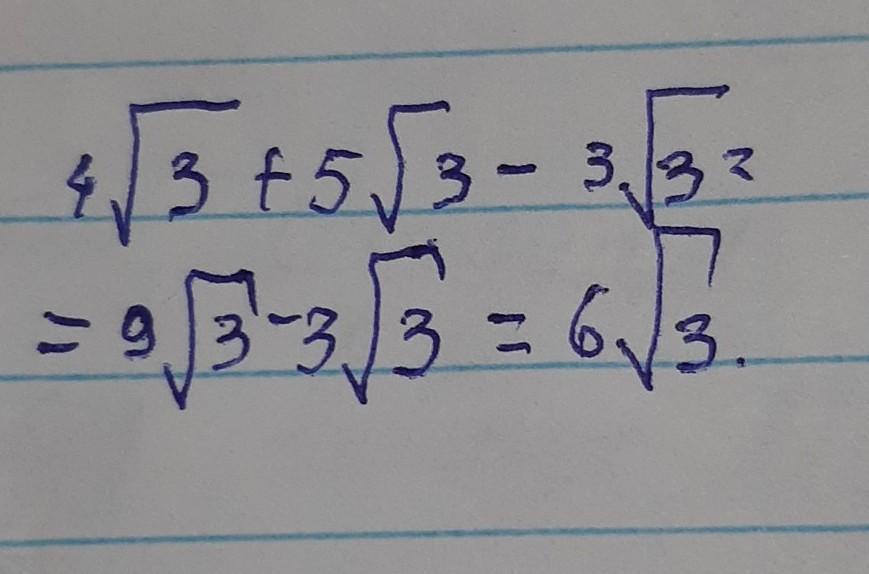 4√3 + 5√3 - 3√3 =
= 9√3 - 3√3 = 6√3.